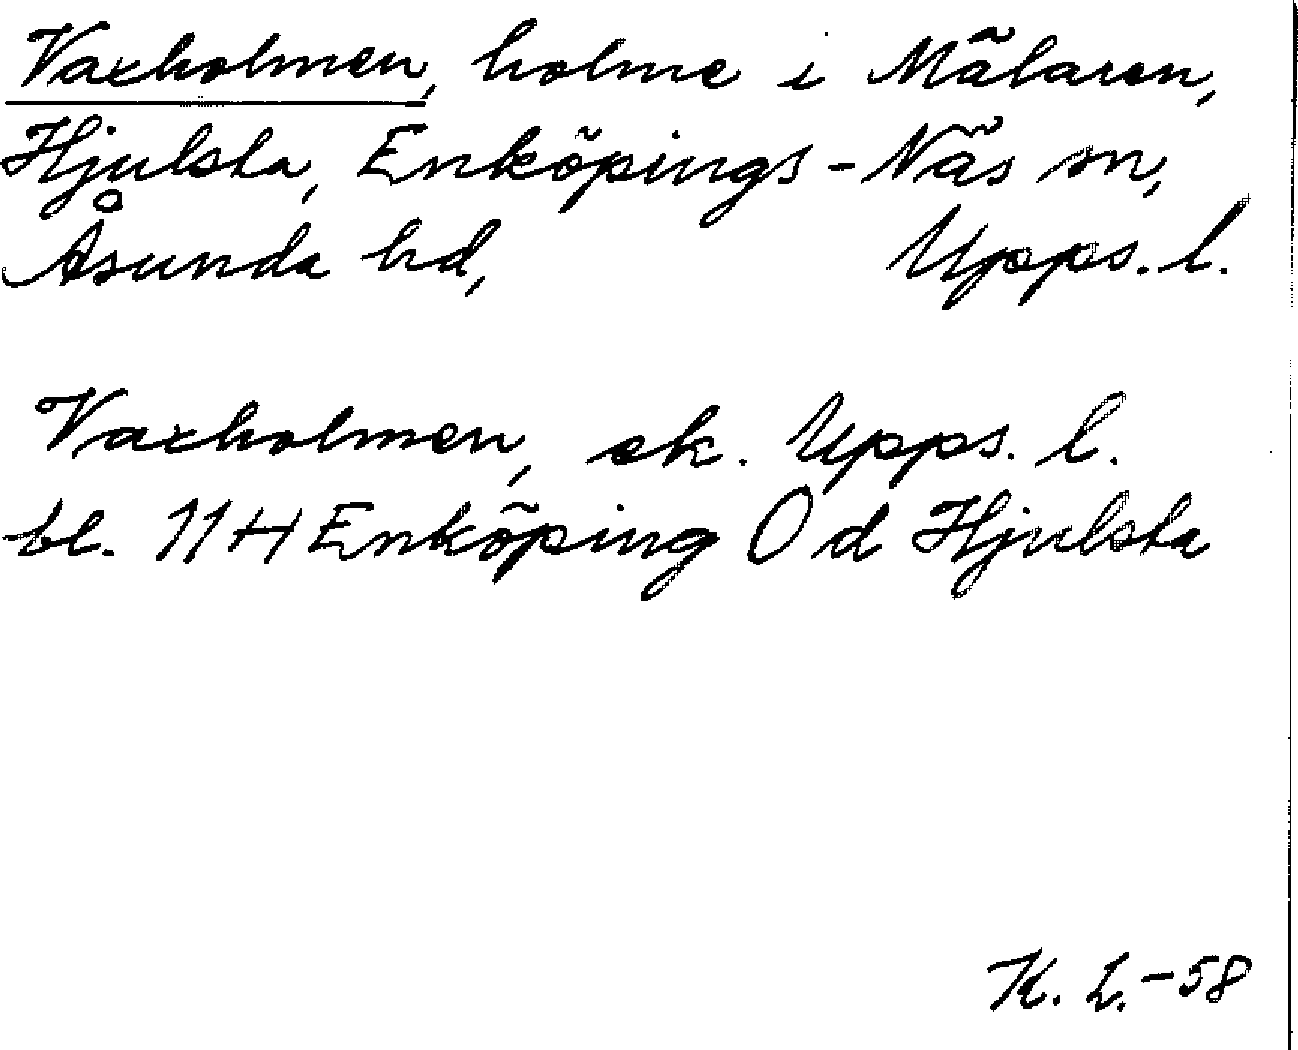 Vaxholmen, holme i Mälaren,
Hjulsta, Enköpings-Näs sn,
Åsunda hd, Upps. l.
Vaxholmen, ek. Upps. l.
bl. 11H Enköping 0 d Hjulsta
K. L. -58